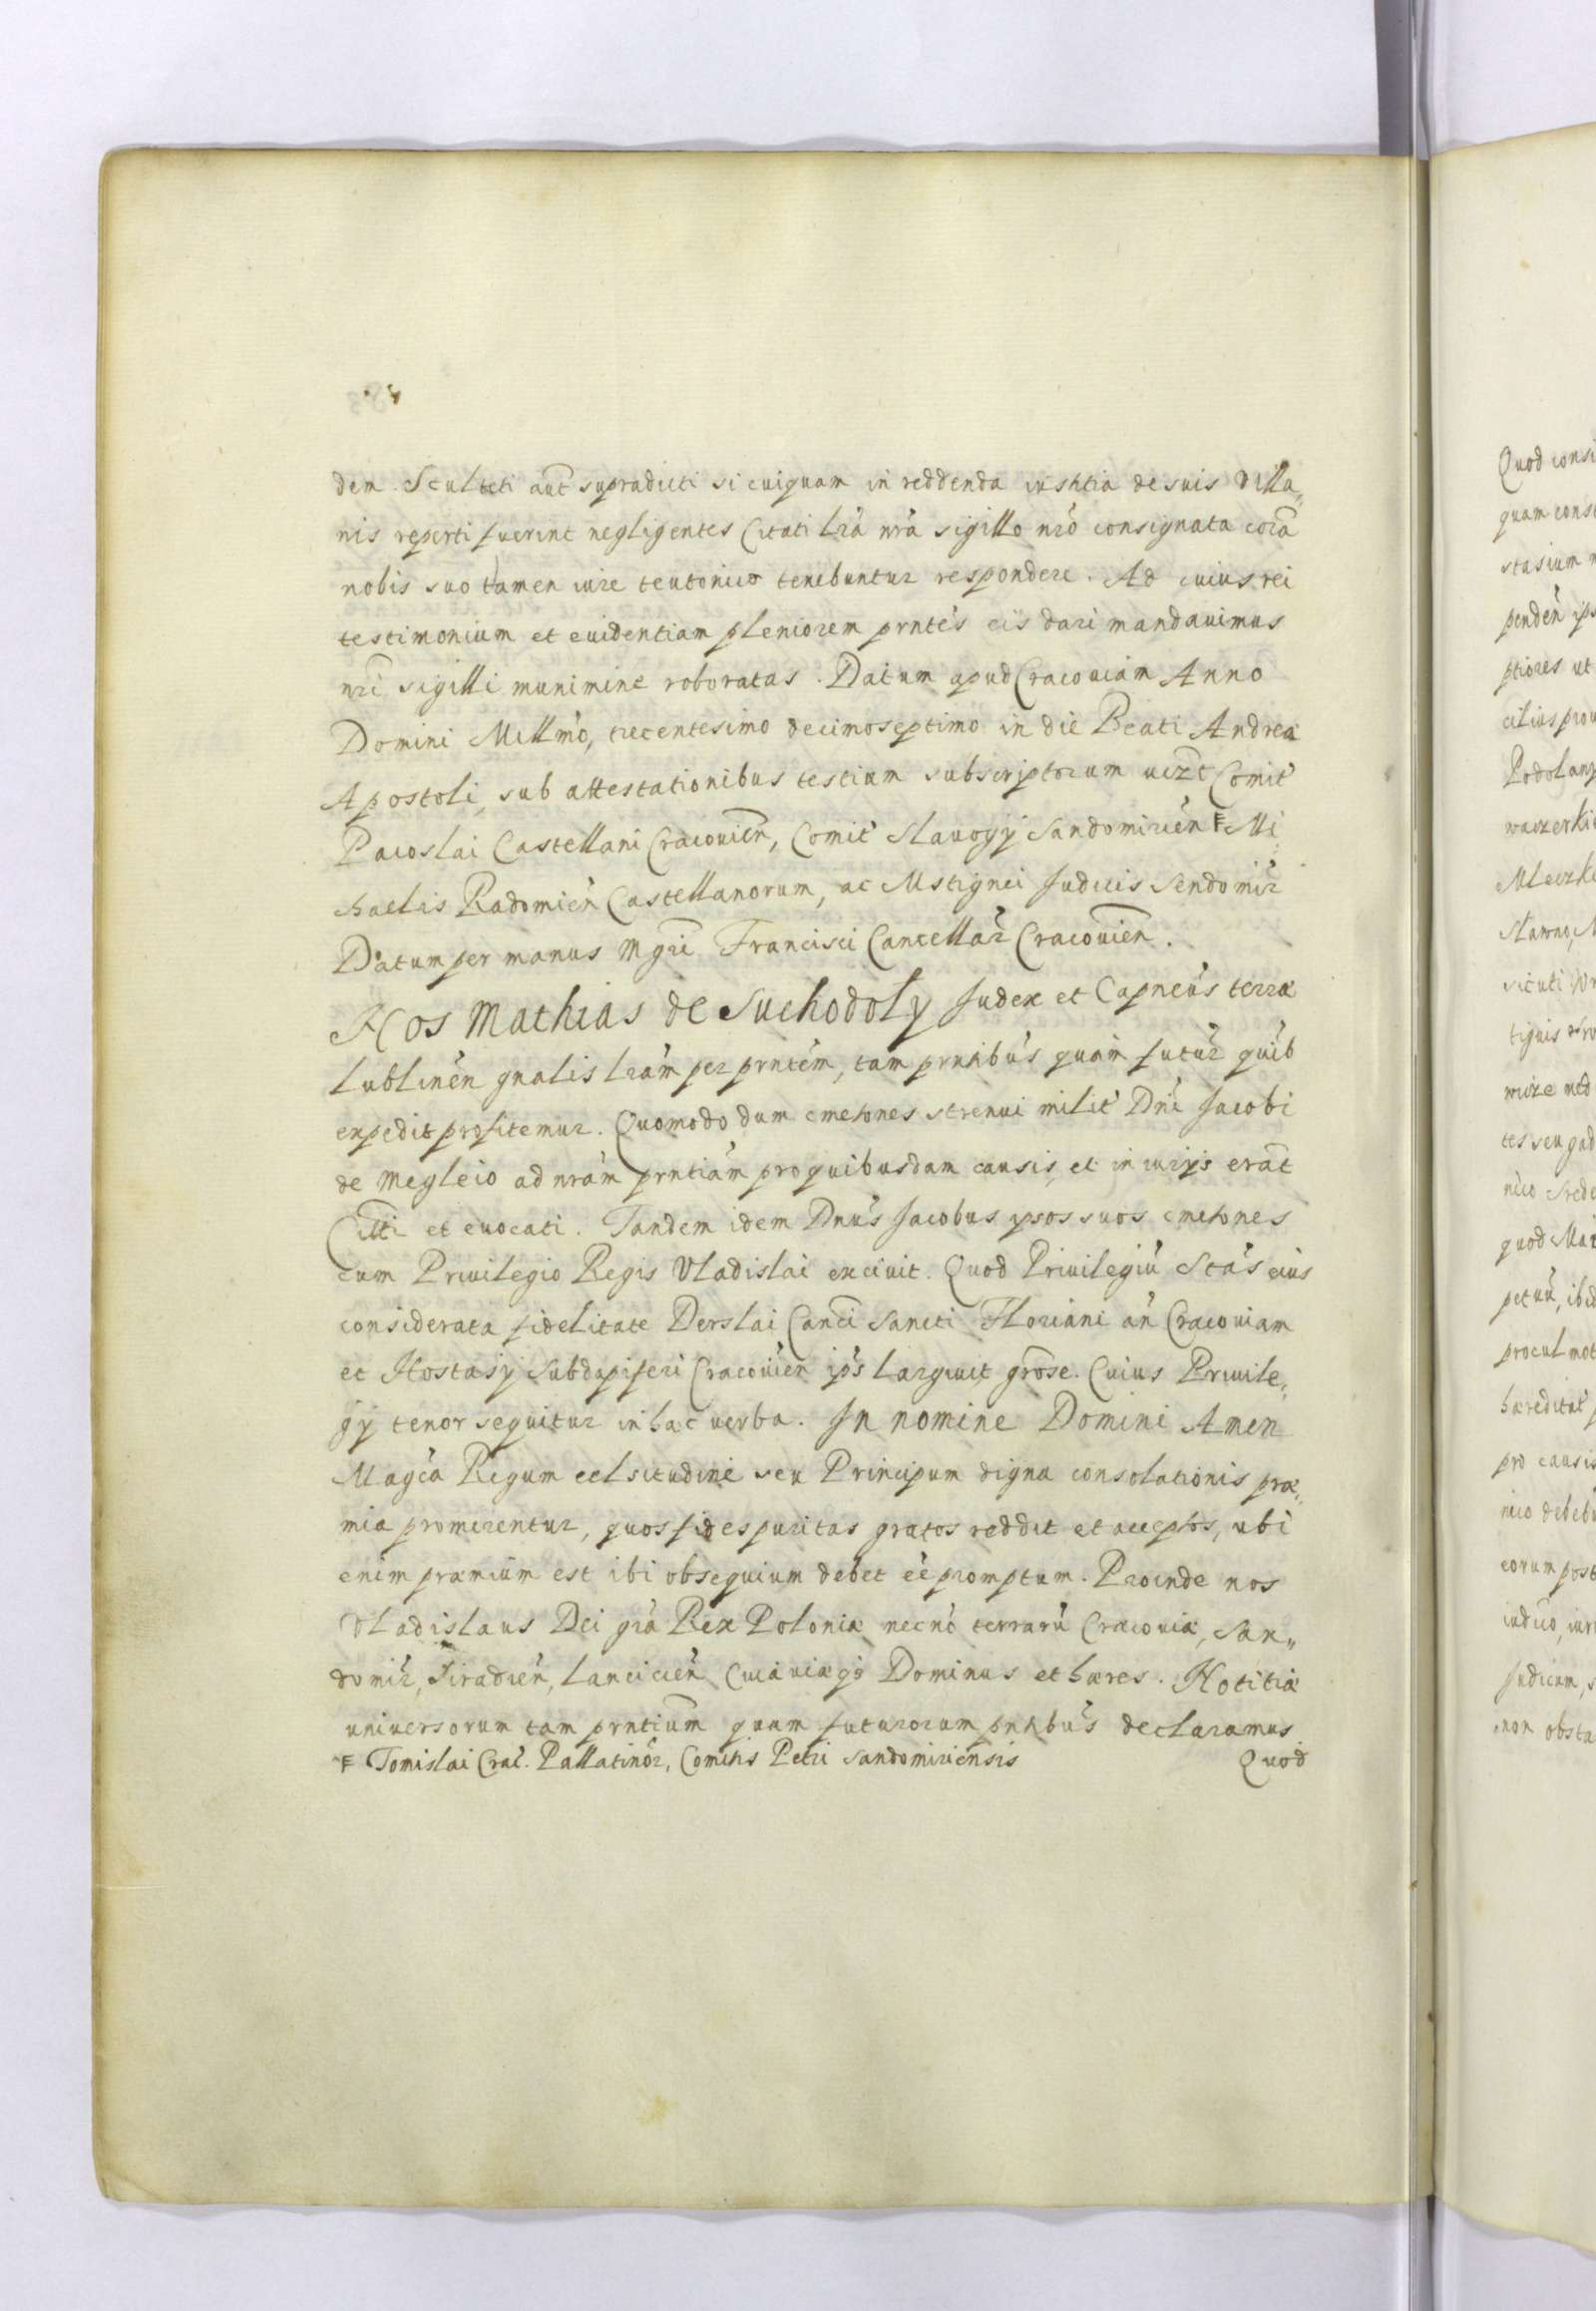 dem. Sculteti aut̃ supradicti si cuiquam in reddenda iustitia de suis Villa„
nis reperti fuerint negligentes Citati lrã nrã sigillo nrõ consignata corã
nobis suo tamen iure teutonico tenebuntur respondere. Ad cuius rei
testimonium et euidentiam pleniorem prntẽs eis dari mandauimus
nri̅ sigilli munimine roboratas. Datum apud Cracouiam Anno
Domini Millmõ, trecentesimo decimoseptimo in die Beati Andreæ
Apostoli, sub attestationibus testium subscriptorum uizt Comit̃
Pacoslai Castellani Cracouien̅, Comit̃ Slauogÿ Sandomirien̅ Ƒ Mi
chaelis Radomien̅ Castellanorum, ac Mstignei Judicis Sendomir̃
Datum per manus Mgri̅ Francisci Cancellar̃ Cracouien̅.
Nos Mathias de Suchodoly Judex et Capneũs terræ
Lublinen̅ gnalis lrãm per prntẽm, tam prntibũs quàm futur̃ quib̃
expedit profitemur. Quomodo dum cmetones strenui milit̃ Dni̅ Jacobi
de Megleio ad nrãm prntiãm pro quibusdam causis, et iniurijs erãt
Citti et euocati. Tandem idem Dnũs Jacobus ipsos suos cmetones
cum Priuilegio Regis Vladislai exciuit. Quod Priuilegiũ Stãs eius
considerata fidelitate Derslai Canci̅ Sancti Floriani an̅ Cracouiam
et Hostasÿ Subdapiferi Cracouien̅ ips̃ largiuit grõse. Cuius Priuile„
gÿ tenor sequitur in hæc uerba. In nomine Domini Amen
Magẽa Regum celsitudine seu Principum digna consolationis præ„
mia promerentur, quos fides puritas gratos reddit et acceptos, ubi
enim præmium est ibi obsequium debet eẽ promptum. Proinde nos
Vladislaus Dei grã Rex Poloniæ necnõ terrarũ Cracouiæ, San„
domir̃, Siradien̅, Lancicien̅ Cuiauiæq̃ Dominus et hæres. Notitiæ
uniuersorum tam prntium̅ quam futurorum pntibũs declaramus
Ƒ Tomislai Crac̃. Pallatinõr, Comitis Petri Sandomiriensis Quod